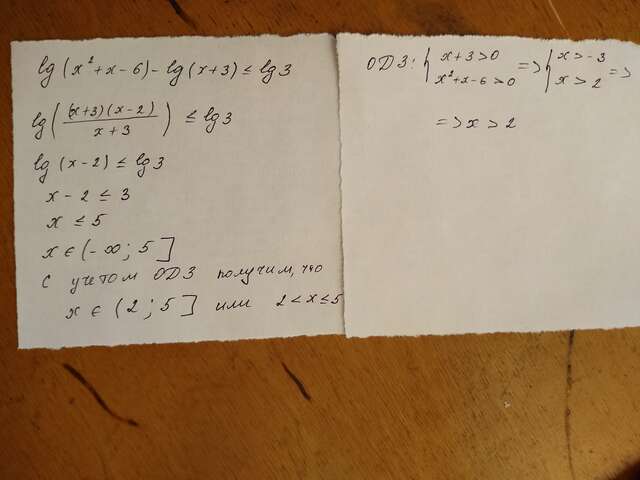 lg(x²+x-6)-lg(x+3)≤lg3
lg((x+3)(x-2)/(x+3))≤lg3
lg(x-2)≤lg3
x-2≤3
x≤5
x∈(-∞;5]
с учетом ОДЗ получим, что
x∈(2;5] или 2<x≤5
ОДЗ: {x+3>0 => {x>-3 =>
x²+x-6>0 x>2
=>x>2